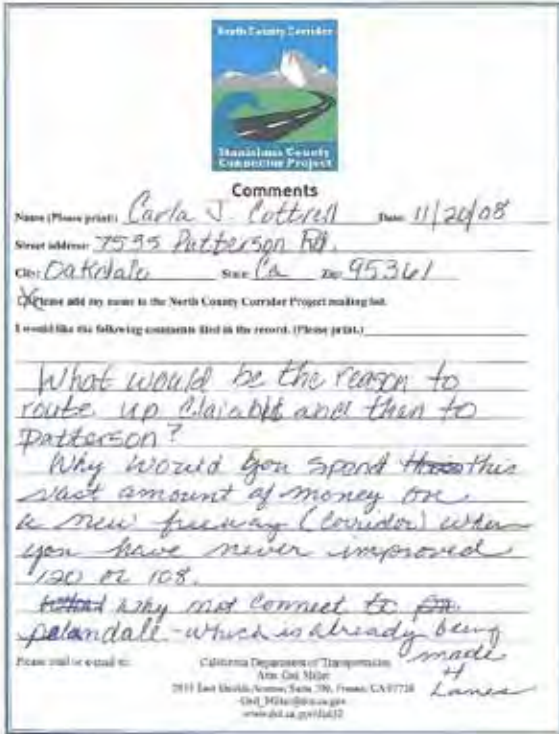 North County Corridor
Stanislaus County
Connector Project
Comments
Name (Please print): Carla J. Cottrell Date: 11/20/08
Street address: 7535 Patterson Rd.
City: Oakdale State: Ca Zip: 95361
Please add my name to the North County Corridor Project mailing list.
I would like the following comments filed in the record. (Please print.)
What would be the reason to
route up and then to
Patterson?
Why would you spend this
vast amount of money on
a new freeway (corridor) when
you have never improved
120 or 108.
Why not connect to
pelandale - which is already being
made
4
Lanes
Please mail or e-mail to:
California Department of Transportation
Attn: Gail Miller
2015 East Shields Avenue, Suite 100, Fresno, CA 93726
Gail_Miller@dot.ca.gov
www.dot.ca.gov/dist10